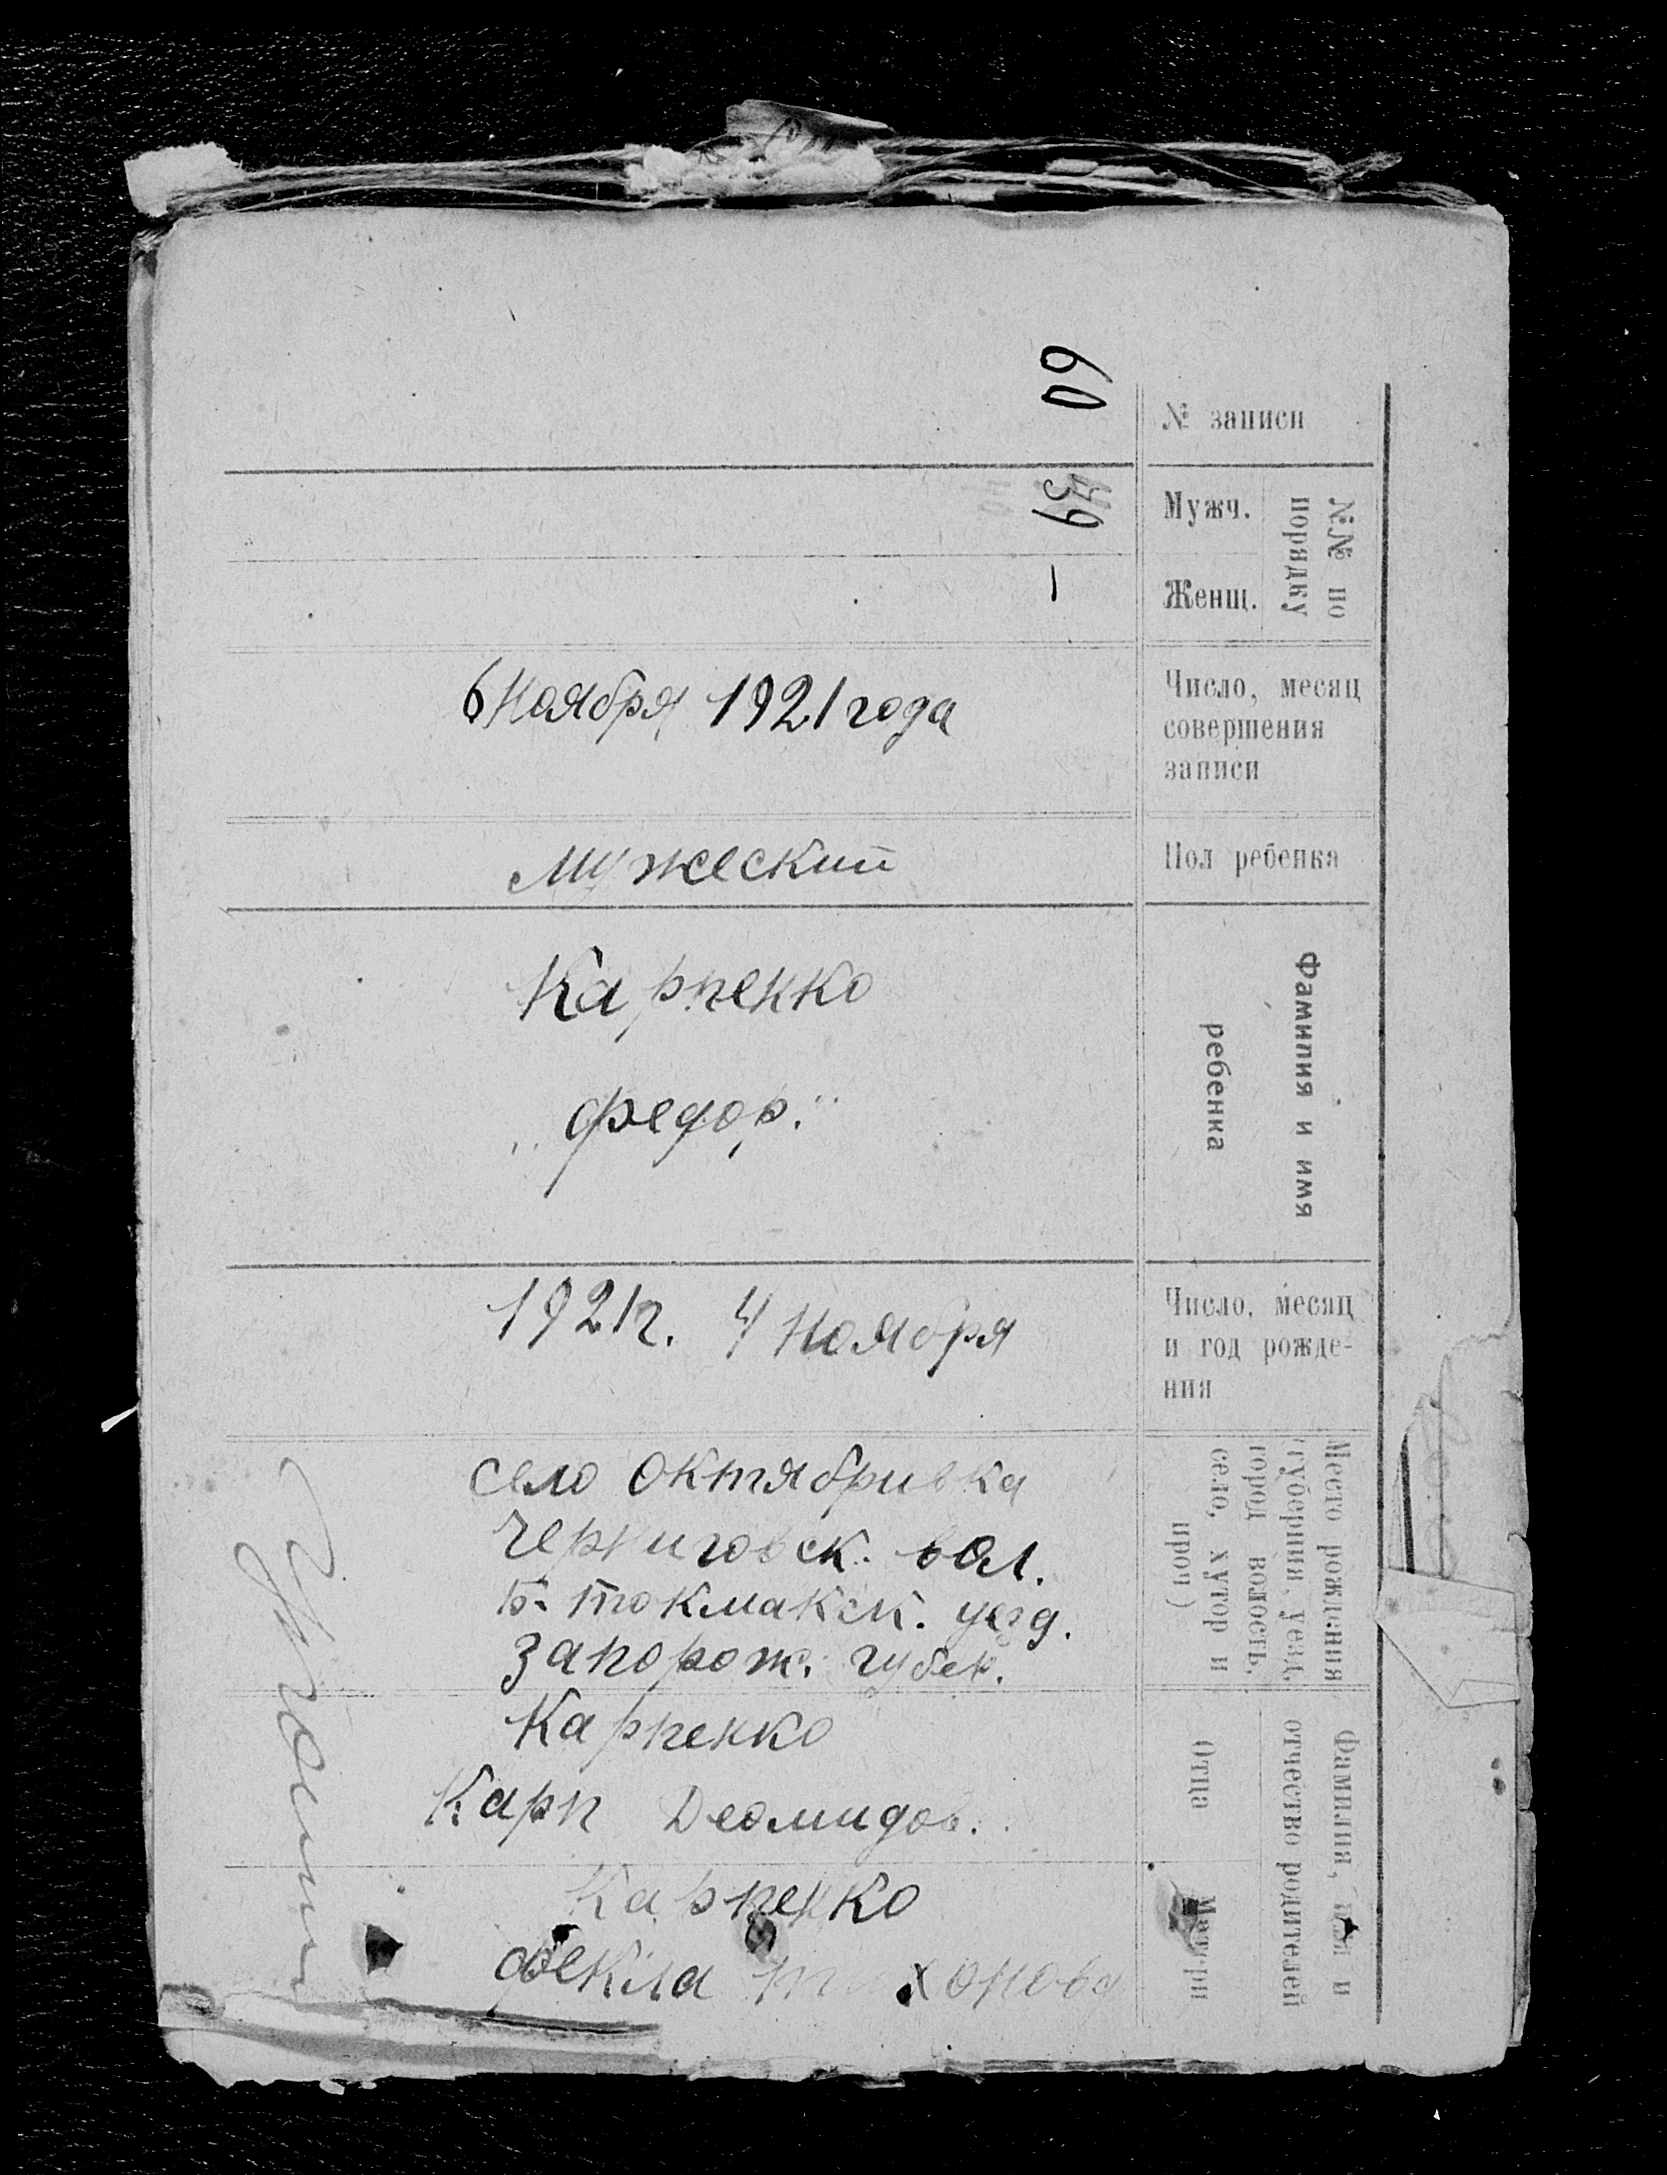 60
№ записи
39
Мужч.
№№ по
порядку
—
Женщ.
6 Ноября 1921 года
Число, месяц
совершения
записи
мужеский
Пол ребенка
Карпенко
„Федор."
Фамилия и имя
ребенка
1921г. 4 Ноября
Число, месяц
и год рожде-
ния
село Октябривка
Черниговск. вол.
Б-Токмакск. уезд.
Запорож. губер.
Место рождения
(губерния, уезд,
город волость,
село, хутор и
проч)
Карпенко
Карп Деомидов.
Фамилия, имя и
отчество родителей
Отца
Карпенко
Фекла Тихонова
Матери